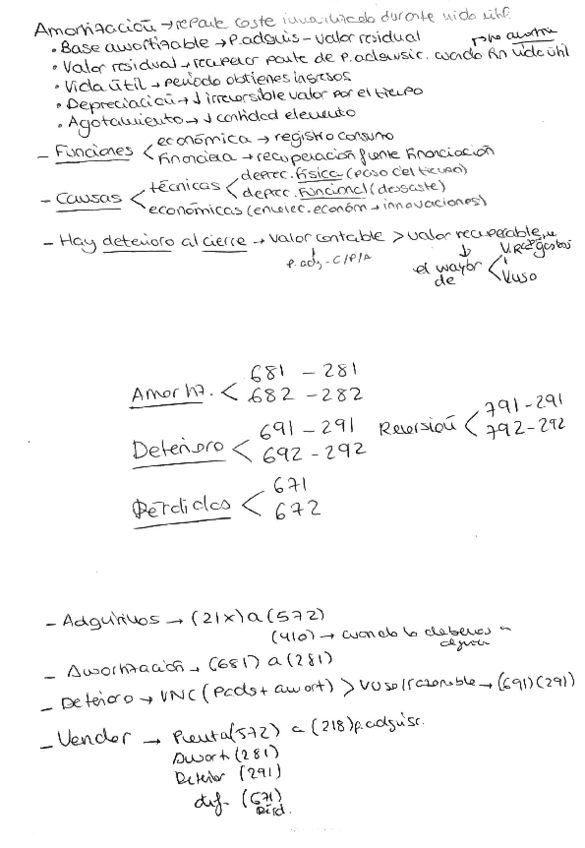 Amortización → reparte coste inmovilizado durante vida útil.
• Base amortizable → P.adquis – valor residual
→ no amortiz
• Valor residual → recuperar parte de P. adquisic. cuando fin vida útil
• Vida útil → periodo obtienes ingresos
• Depreciación → ↓ irreversible valor por el tiempo
• Agotamiento → ↓ cantidad elemento
- Funciones < económica → registro consumo
financiera → recuperación fuente financiación
- Causas < técnicas < deprec. física (paso del tiempo)
deprec. funcional (desgaste)
económicas (envejec. económ → innovaciones)
- Hay deterioro al cierre → valor contable > valor recuperable
p. adq - C/P/A
el mayor de < V.Raz-gastos
V uso
Amortiz. < 681 – 281
682 – 282
Deterioro < 691 – 291
692 – 292
Reversión < 791 – 291
792 – 292
Pérdidas < 671
672
- Adquirimos → (21x) a (572)
(410) → cuando lo debemos a
- Amortización → (681) a (281)
- Deterioro → VNC (Pads + amort) > Vuso/razonable → (691) (291)
- Vender → Pventa (572) a (218) p.adquisc.
Amort (281)
Deterior (291)
dif. (671)
Pérd.